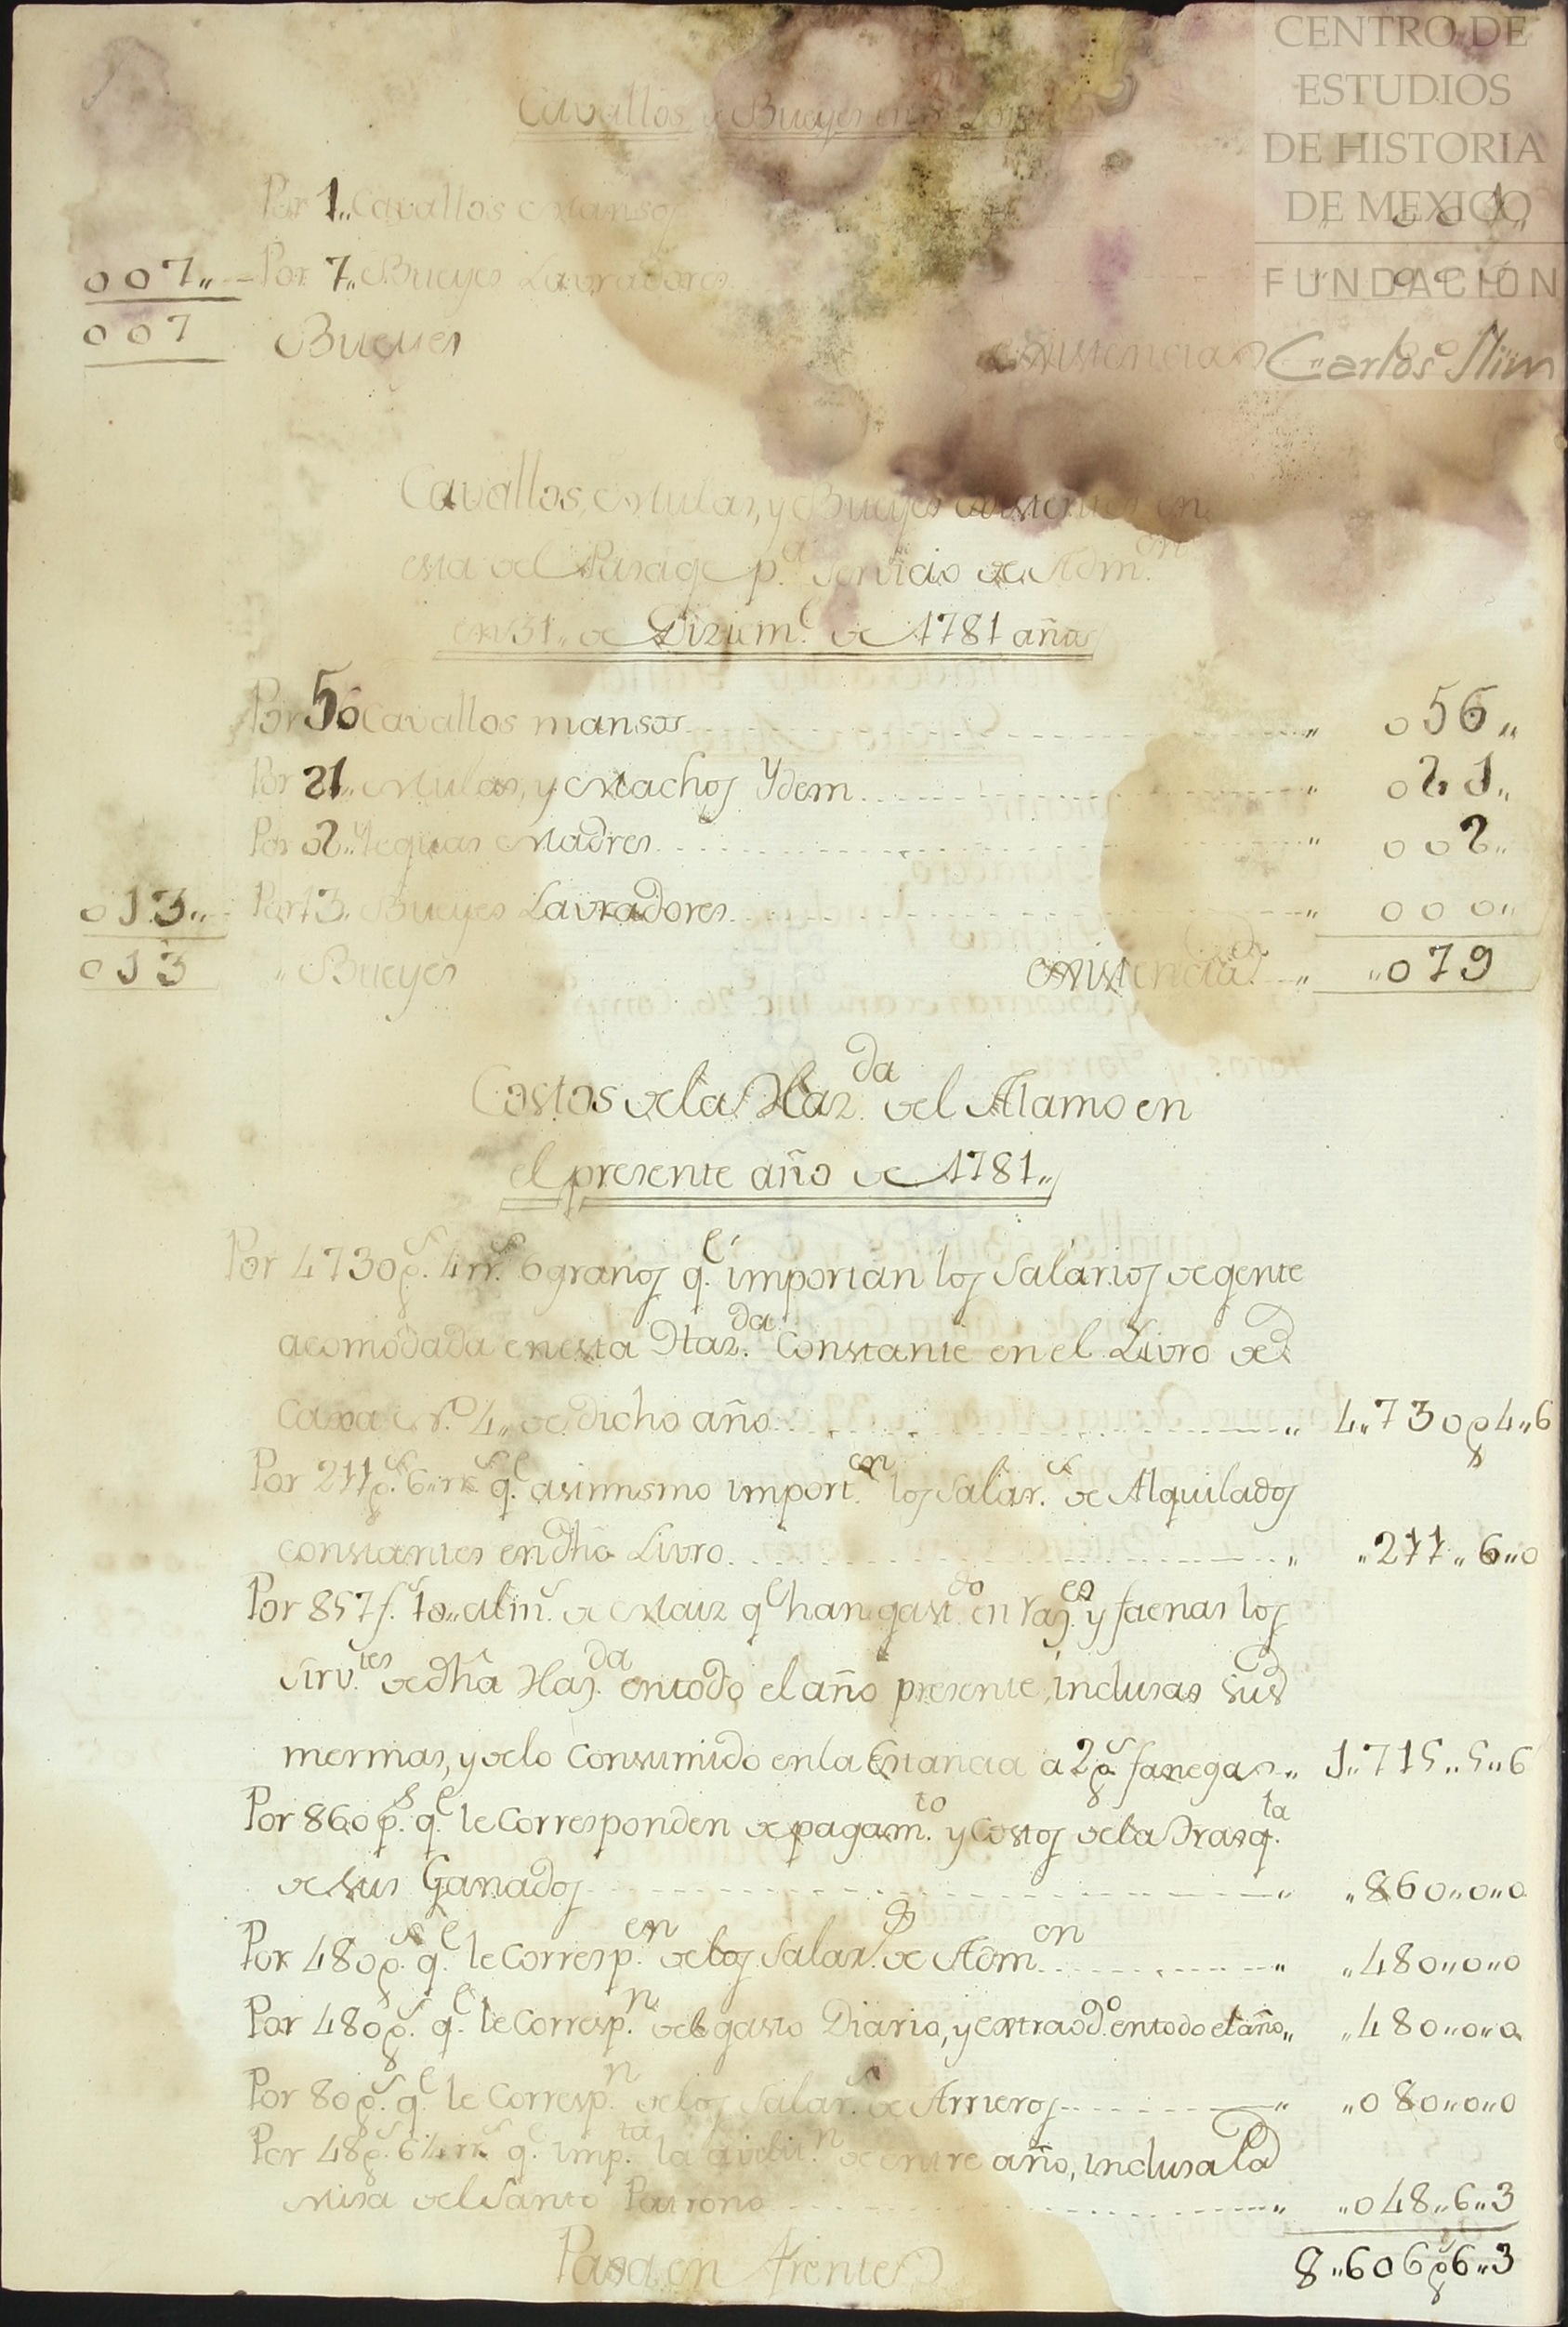 CENTRO DE
ESTUDIOS
DE HISTORIA
DE MEXICO
FUNDACIÓN
Carlos Slim
Cavallos y Bueyes en
Por 1,, Cavallos Mansos ,, 001,,
007,, Por 7,, Bueyes Lavradores ,, 000
007 Bueyes existencias ,, 00
Cavallos, Mulas, y Bueyes existentes en
esta del Pasage p.a Servicio de Adm.on
en 31,, de Diziem.e de 1781 años
Por 56 Cavallos mansos ,, 056,,
Por 21,, Mulas, y Machos Ydem ,, 021,,
Por 02,, Yeguas Madres ,, 002,,
013,, Por 13,, Bueyes Lavradores ,, 000,,
013 ,, Bueyes existencia ,, ,,079
Costos de la Haz.da del Alamo en
el presente año de 1781,,
Por 4730 p.s 4 rr.s 6 granos q.e importan los Salarios de gente
acomodada en esta Haz.da Constante en el Livro de
Caxa N.o 4,, de dicho año ,, 4,,730 p 4,,6
Por 211 p.s 6 rr.s q.e asimismo import.on los Salar.s de Alquilados
constantes en dho Livro ,, ,,211,,6,,0
Por 857 f.s 10,, alm.s de Maiz q.e han gast.do en Raz.es y faenas los
sirv.tes de dha Haz.da en todo el año presente, inclusas sus
mermas, y de lo Consumido en la Estancia a 2 p.s fanegas ,, 1,,715,,5,,6
Por 860 p.s q.e le Corresponden de pagam.to y Costos de la Trasq.ta
de sus Ganados ,, ,,860,,0,,0
Por 480 p.s q.e le Corresp.en de los Salar.s de Adm.on ,, ,,480,,0,,0
Por 480 p.s q.e le Corresp.n del gasto Diario, y extraod.o en todo el año,, ,,480,,0,,0
Por 80 p.s q.e le Corresp.n de los Salar.s de Arrieros ,, ,,080,,0,,0
Por 48 p.s 6 rr.s q.e imp.ta la de entre año, inclusa la
Misa del Santo Patrono ,, ,,048,,6,,3
Pasa en frente 8,,606 p.s 6,,3